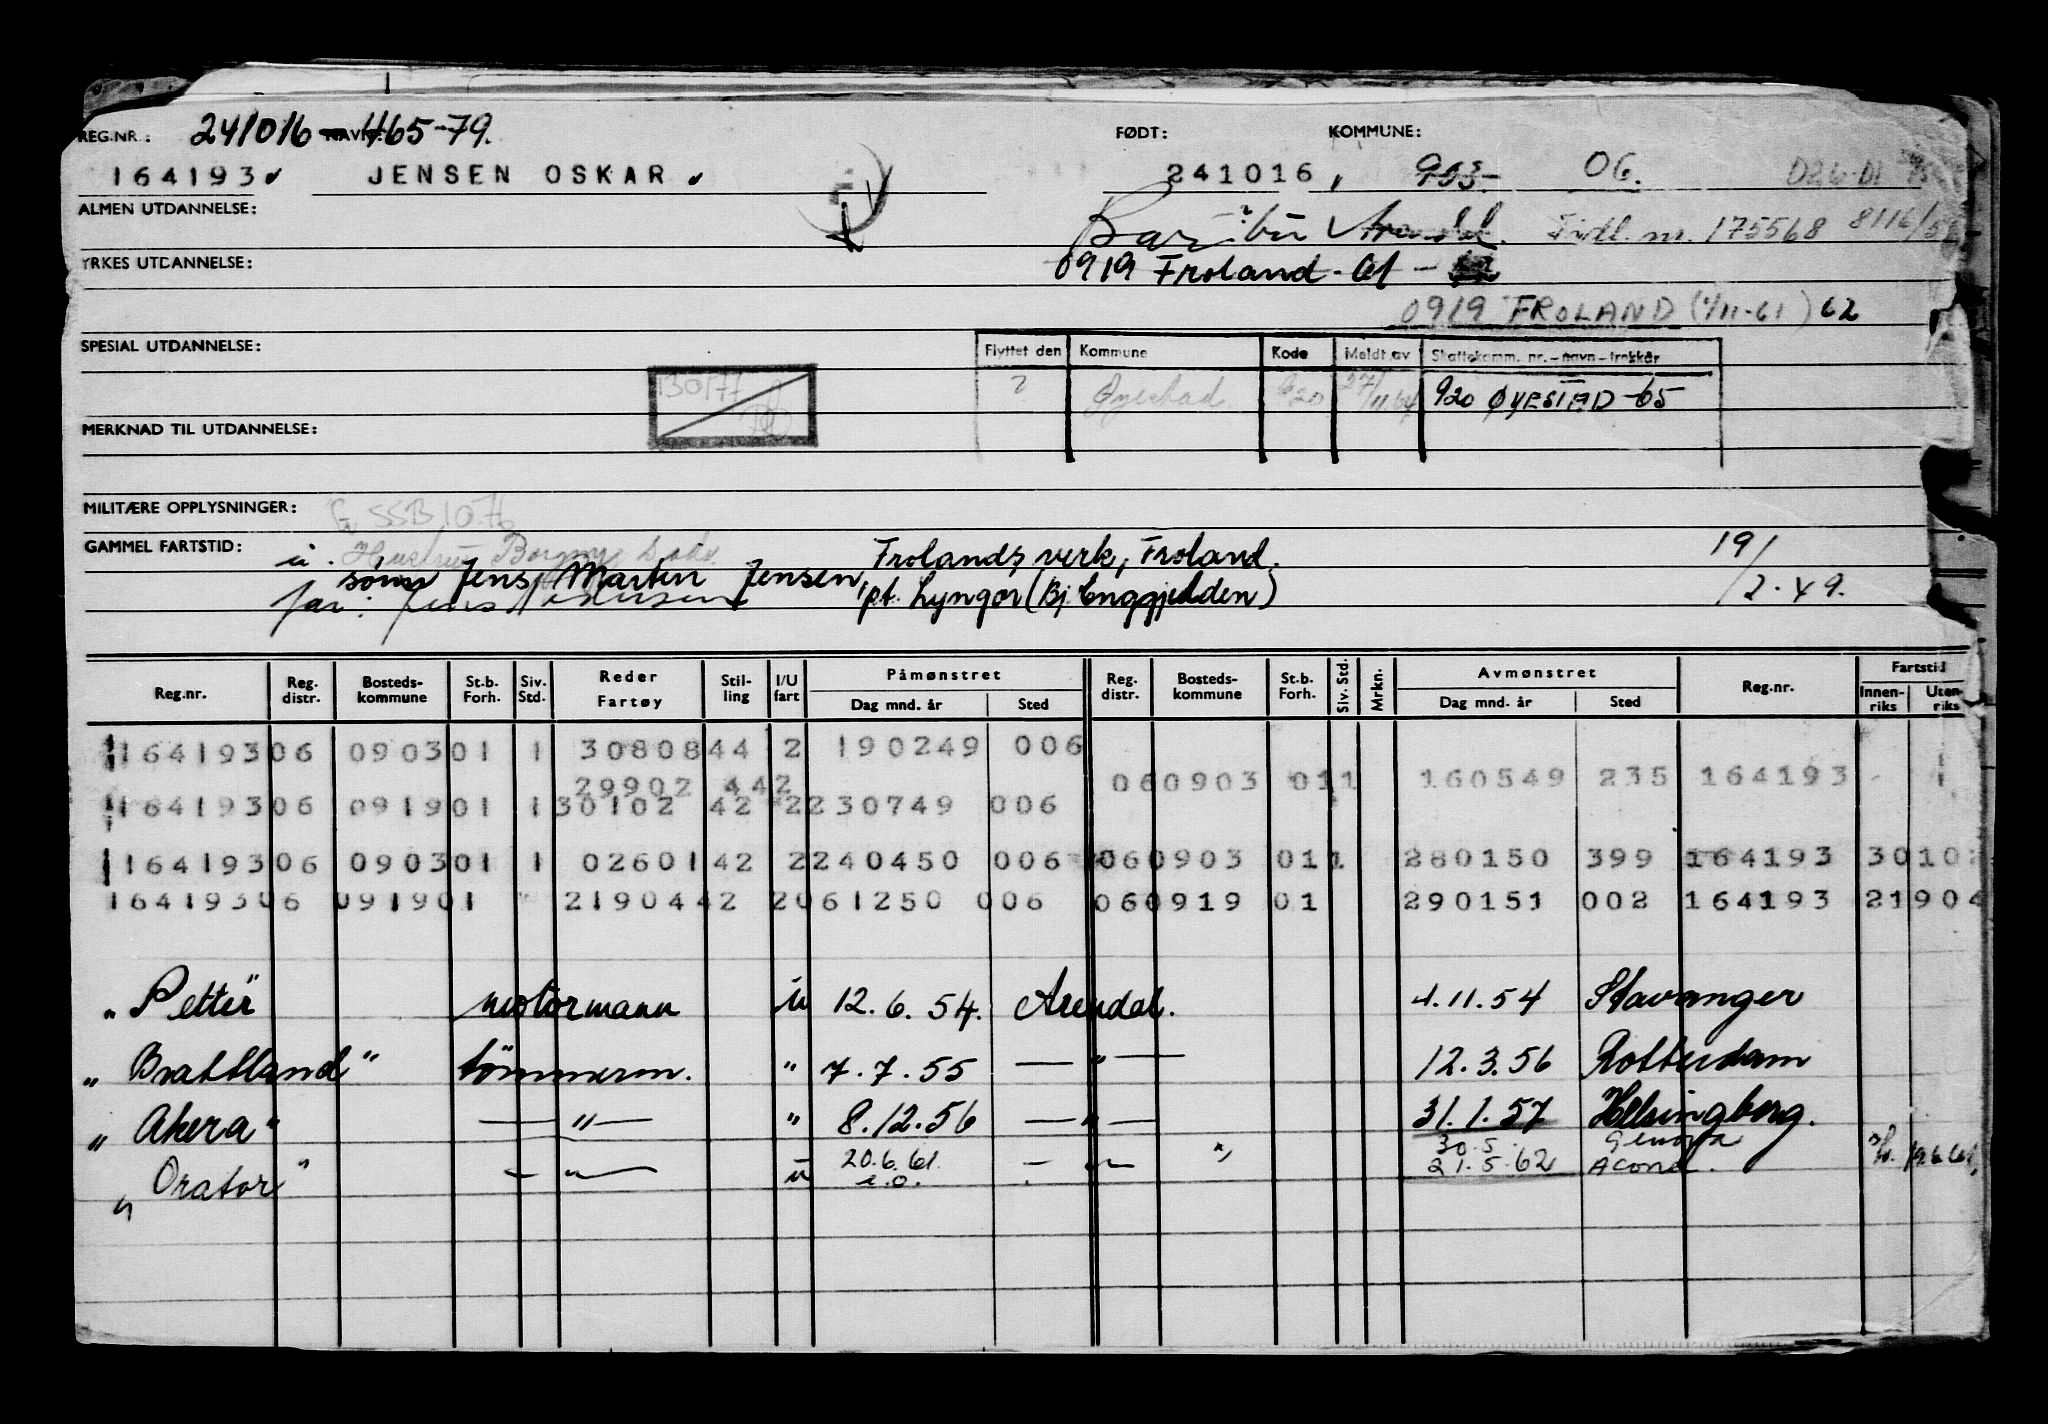 REG.NR.: 241016-46579.
FØDT: KOMMUNE:
164193 JENSEN OSKAR 241016, 903 06.
ALMEN UTDANNELSE:
Arendal. Tidl. nr. 175568 8116/5
YRKES UTDANNELSE: 0919 Froland - 61 -
0919 FROLAND (1/11-61) 62
SPESIAL UTDANNELSE: Flyttet den Kommune Kode Meldt av Skattekomm. nr.-navn-trekkår
? Øyestad 920 27/11.64 920 ØYESTAD -65
MERKNAD TIL UTDANNELSE:
MILITÆRE OPPLYSNINGER: SSB 10.76
GAMMEL FARTSTID: u. Hustru Borgny Frolands verk, Froland. 19/2.49.
sønn Jens Martin Jensen, pt. Lyngør (Bj. Enggjedden)
far: Jens
Reg.nr. Reg. distr. Bosteds-kommune St.b. Forh. Siv. Std. Reder Fartøy Stil-ling I/U fart Påmønstret Dag mnd. år Sted Reg. distr. Bosteds-kommune St.b. Forh. Siv. Std. Mrkn. Avmønstret Dag mnd. år Sted Reg.nr. Fartstid Innen-riks Uten-riks
164193 06 0903 01 1 30808 44 2 190249 006
29902 442 06 0903 01 1 160549 235 164193
164193 06 0919 01 1 30102 42 2 230749 006
164193 06 0903 01 1 02601 42 2 240450 006 06 0903 01 1 280150 399 164193 30102
164193 06 0919 01 21904 42 2 061250 006 06 0919 01 290151 002 164193 21904
"Petter" motormann u 12.6.54. Arendal. 4.11.54 Stavanger
"Brattland" tömmerm. " 7.7.55 — " — 12.3.56 Rotterdam
"Akera" — " — " 8.12.56 — " — 31.1.57 Helsingborg.
30.5 Genova
"Orator" — " — u 20.6.61. — " — " 21.5.62 Acona. 19.6.61,
i.o.